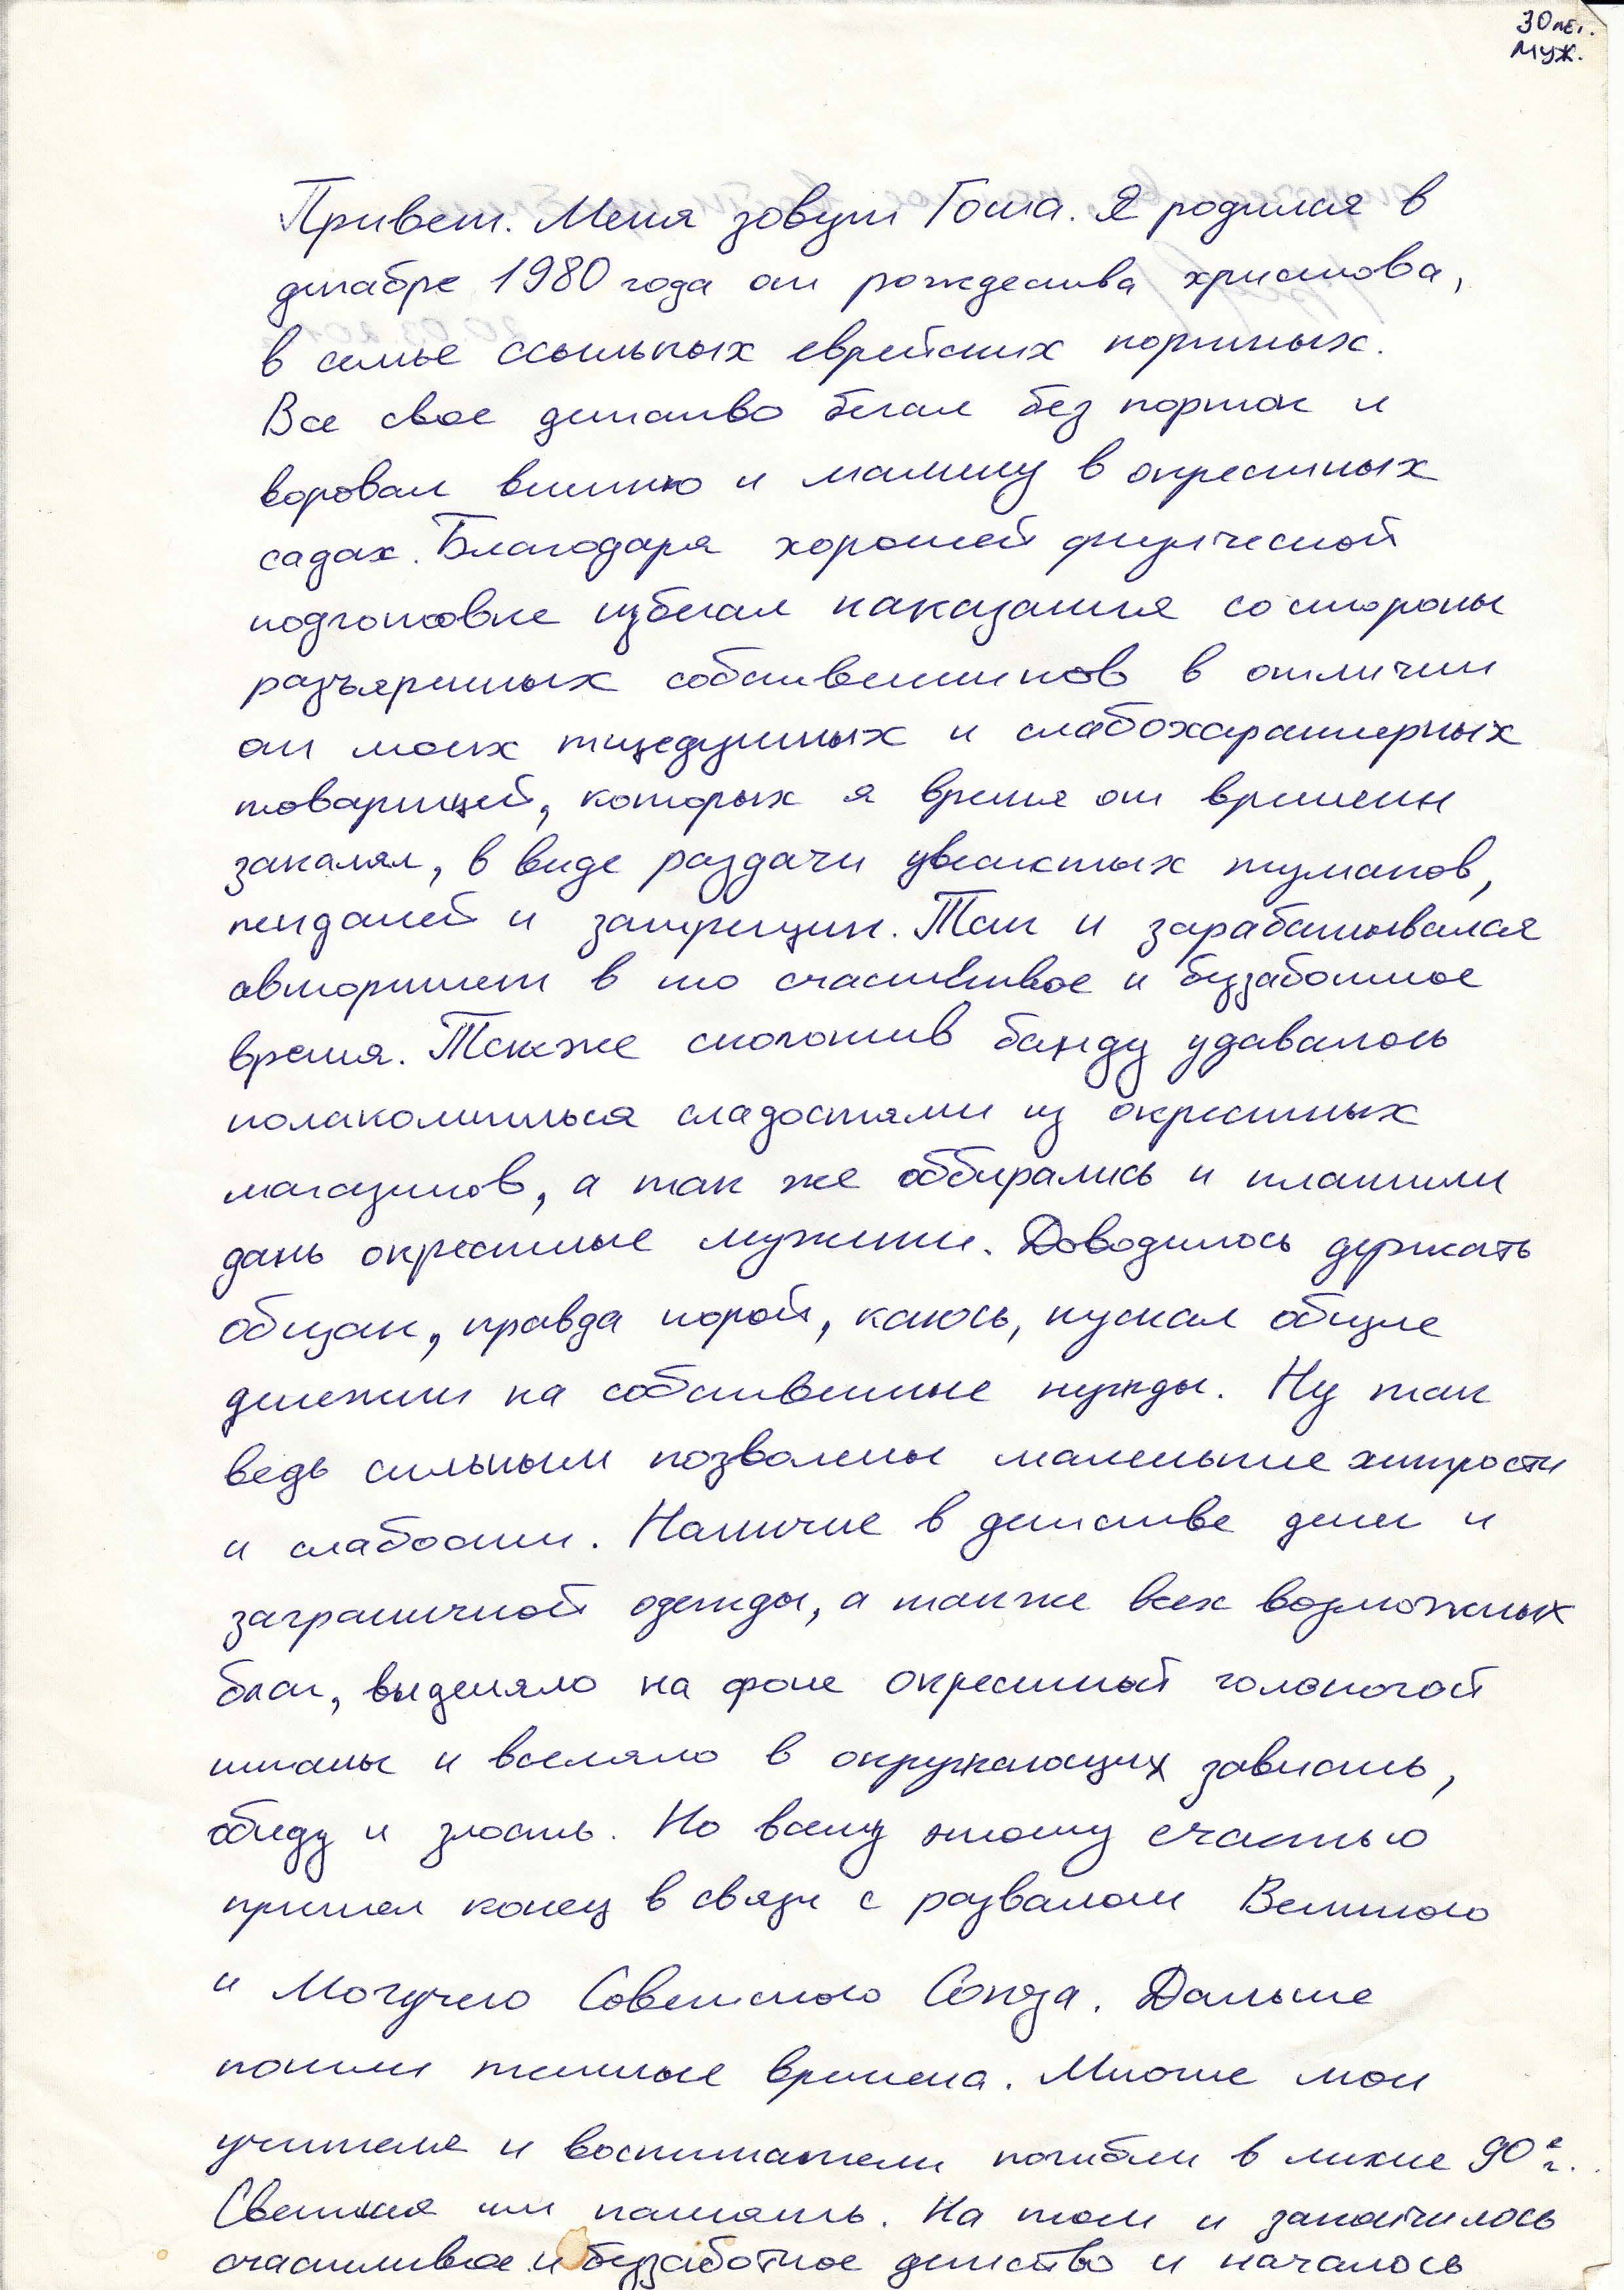 30 лет.
муж.
Привет. Меня зовут Гоша. Я родился в
декабре 1980 года от рождества христова,
в семье ссыльных еврейских портных.
Все свое детство бегал без порток и
воровал вишню и малину в окрестных
садах. Благодаря хорошей физической
подготовке избегал наказания со стороны
разъяренных собственников в отличии
от моих тщедушных и слабохарактерных
товарищей, которых я время от времени
закалял, в виде раздачи увесистых тумаков,
пендалей и затрещин. Так и зарабатывался
авторитет в то счастливое и беззаботное
время. Также сколотив банду удавалось
полакомиться сладостями из окрестных
магазинов, а так же оббирались и платили
дань окрестные мужики. Доводилось держать
общак, правда порой, каюсь, пускал общие
денежки на собственные нужды. Ну так
ведь сильным позволены маленькие хитрости
и слабости. Наличие в детстве денег и
заграничной одежды, а также всех возможных
благ, выделяло на фоне окрестной голоногой
шпаны и вселяло в окружающих зависть,
обиду и злость. Но всему этому счастью
пришел конец в связи с развалом Великого
и Могучего Советского Союза. Дальше
пошли темные времена. Многие мои
учителя и воспитатели погибли в лихие 90е г.
Светлая им память. На том и закончилось
счастливое и беззаботное детство и началось